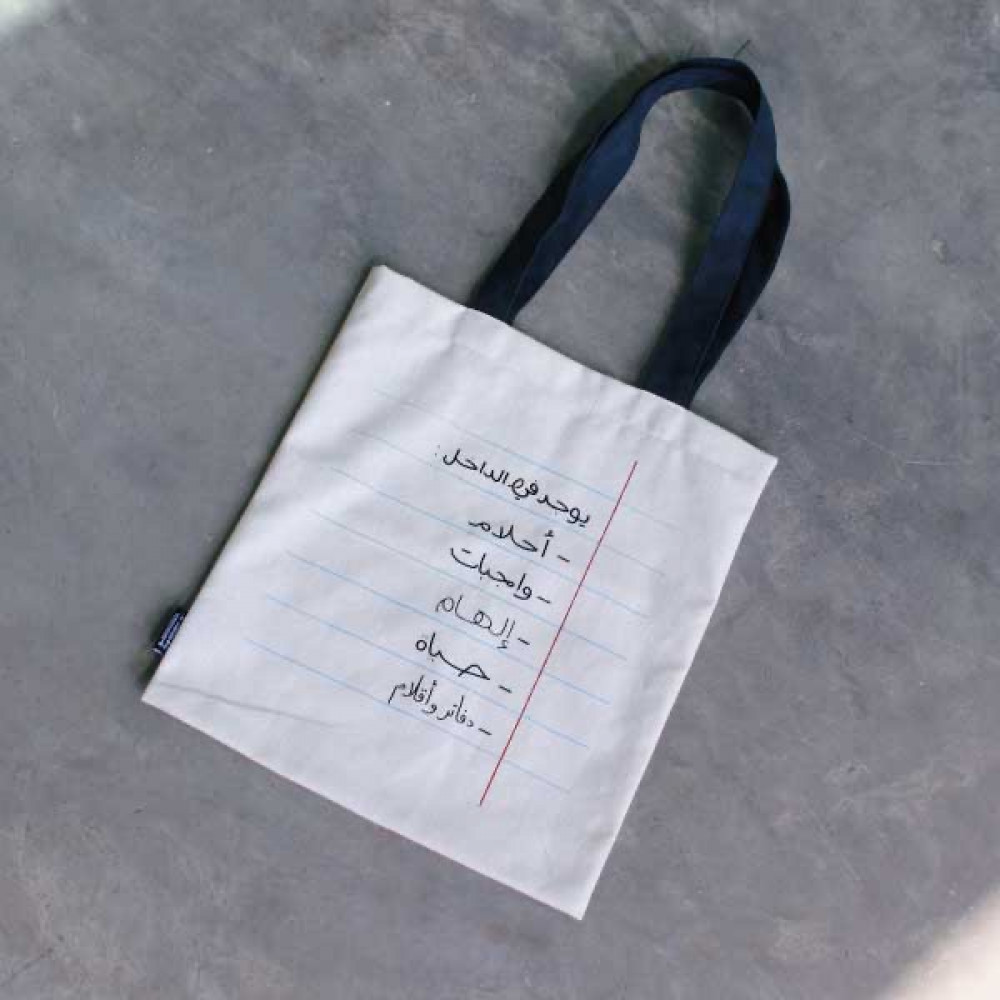 يوجد في الداخل:
- أحلام
- واجبات
- إلهام
- حياة
- دفاتر وأقلام